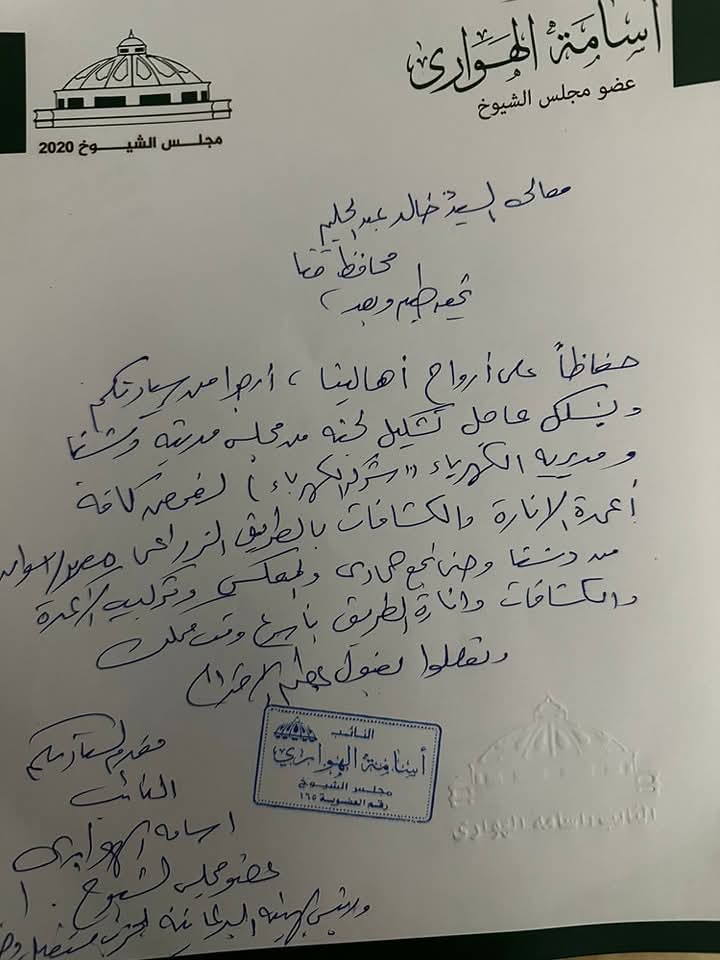 أسامة الهواري
عضو مجلس الشيوخ
مجلس الشيوخ 2020
معالى السيد خالد عبد الحليم
محافظ قنا
تحيه طيبه وبعد،
حفاظاً على أرواح أهالينا، أرجوا من سيادتكم
وبشكل عاجل تشكيل لجنه من مجلس مدينه دشنا
ومديريه الكهرباء "شركه الكهرباء" لفحص كافة
أعمدة الانارة والكشافات بالطريق الزراعى مصر/اسوان
من دشنا وحتى نجع حمادى والعكس وتركيب الأعمدة
والكشافات وانارة الطريق بأسرع وقت ممكن
وتفضلوا بقبول عظيم الاحترام
مقدم لسيادتكم
النائب
اسامه الهوارى
عضو مجلس الشيوخ
ورئيس الهيئه البرلمانيه لحزب مستقبل
النائب
أسامة الهواري
مجلس الشيوخ
رقم العضوية ١٦٥
النائب أسامة الهواري